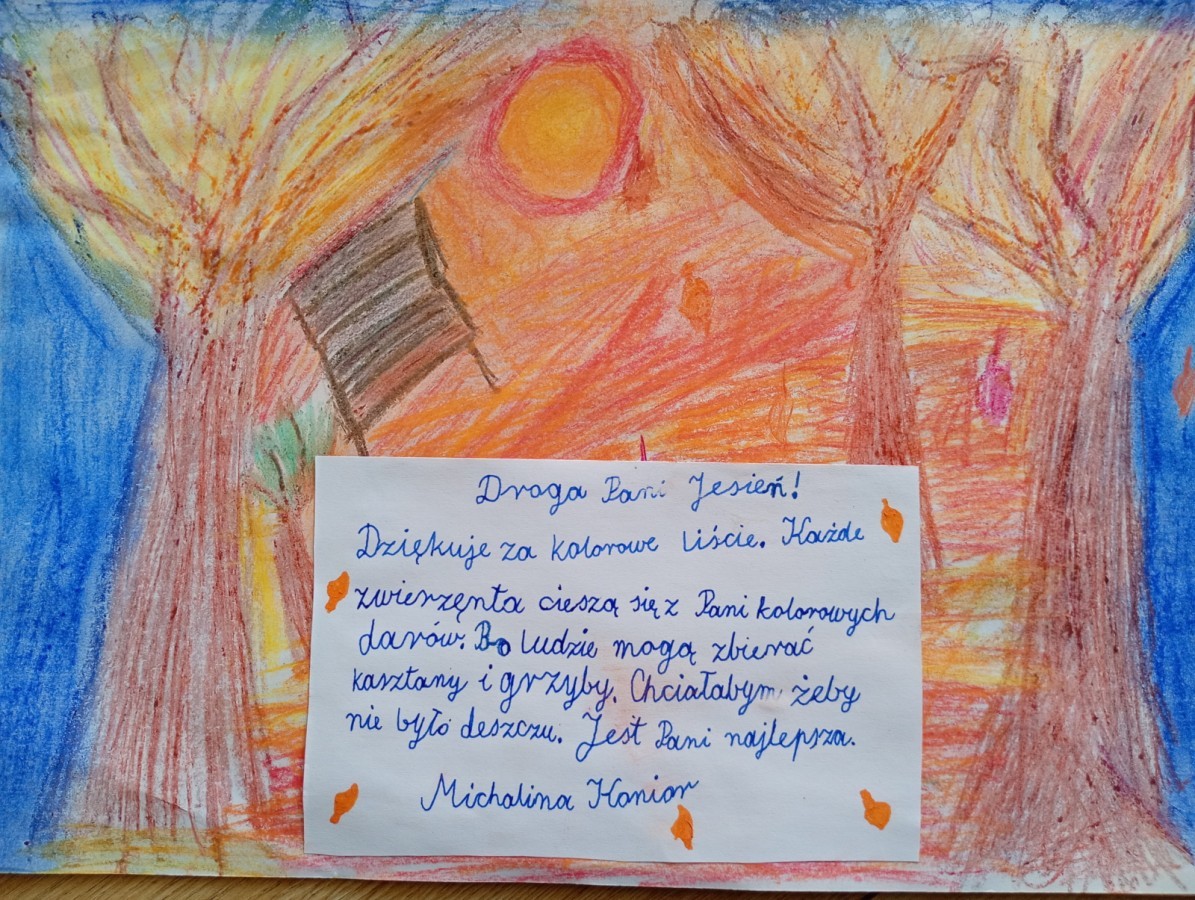 Droga Pani Jesień!
Dziękuje za kolorowe liście. Każde
zwierzęnta cieszą się z Pani kolorowych
darów. Bo ludzie mogą zbierać
kasztany i grzyby. Chciałabym żeby
nie było deszczu. Jest Pani najlepsza.
Michalina Koniar